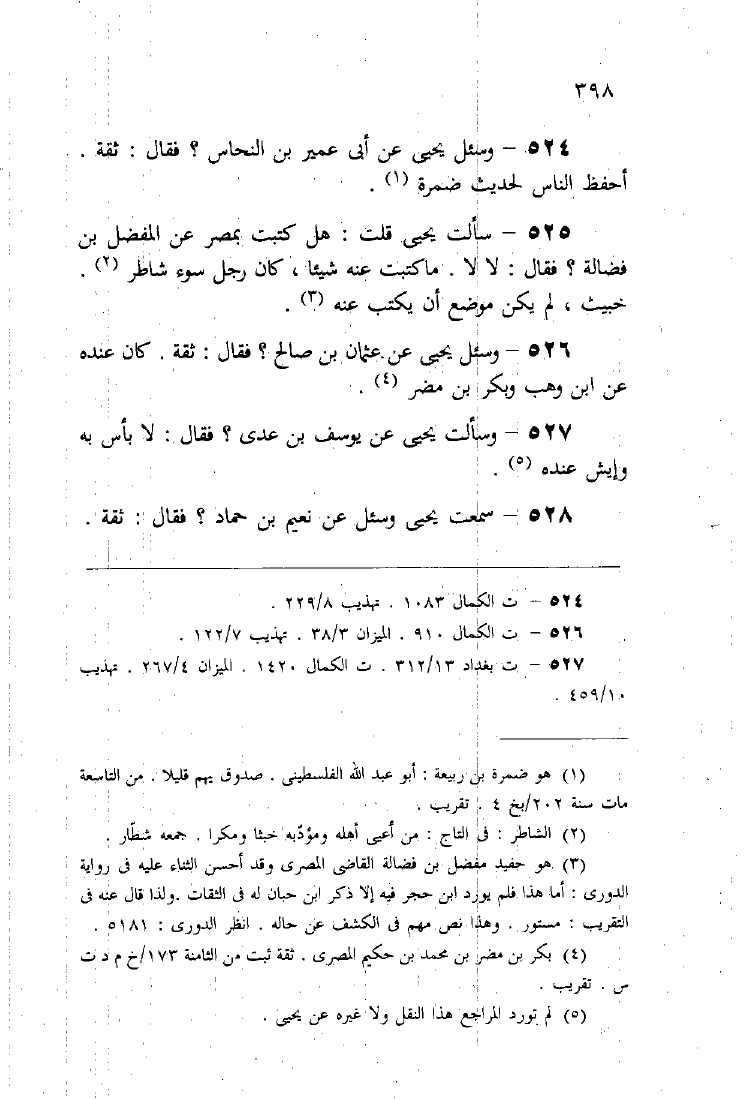 ٣٩٨
٥٢٤ – وسئل يحيى عن أبى عمير بن النحاس ؟ فقال : ثقة .
أحفظ الناس لحديث ضمرة (١) .
٥٢٥ – سألت يحيى قلت : هل كتبت بمصر عن المفضل بن
فضالة ؟ فقال : لا لا . ماكتبت عنه شيئا ، كان رجل سوء شاطر (٢) .
خبيث ، لم يكن موضع أن يكتب عنه (٣) .
٥٢٦ – وسئل يحيى عن عثمان بن صالح ؟ فقال : ثقة . كان عنده
عن ابن وهب وبكر بن مضر (٤) .
٥٢٧ – وسألت يحيى عن يوسف بن عدى ؟ فقال : لا بأس به
وإيش عنده (٥) .
٥٢٨ – سمعت يحيى وسئل عن نعيم بن حماد ؟ فقال : ثقة .
٥٢٤ – ت الكمال ١٠٨٣ . تهذيب ٢٢٩/٨ .
٥٢٦ – ت الكمال ٩١٠ . الميزان ٣٨/٣ . تهذيب ١٢٢/٧ .
٥٢٧ – ت بغداد ٣١٢/١٣ . ت الكمال ١٤٢٠ . الميزان ٢٦٧/٤ . تهذيب
٤٥٩/١٠ .
(١) هو ضمرة بن ربيعة : أبو عبد الله الفلسطينى . صدوق يهم قليلا . من التاسعة
مات سنة ٢٠٢/بخ ٤ . تقريب .
(٢) الشاطر : فى التاج : من أعيى أهله ومؤدّبه خبثا ومكرا . جمعه شطّار .
(٣) هو حفيد مفضل بن فضالة القاضى المصرى وقد أحسن الثناء عليه فى رواية
الدورى : أما هذا فلم يورد ابن حجر فيه إلا ذكر ابن حبان له فى الثقات .ولذا قال عنه فى
التقريب : مستور . وهذا نص مهم فى الكشف عن حاله . انظر الدورى : ٥١٨١ .
(٤) بكر بن مضر بن محمد بن حكيم المصرى . ثقة ثبت من الثامنة ١٧٣/خ م د ت
س . تقريب .
(٥) لم تورد المراجع هذا النقل ولا غيره عن يحيى .